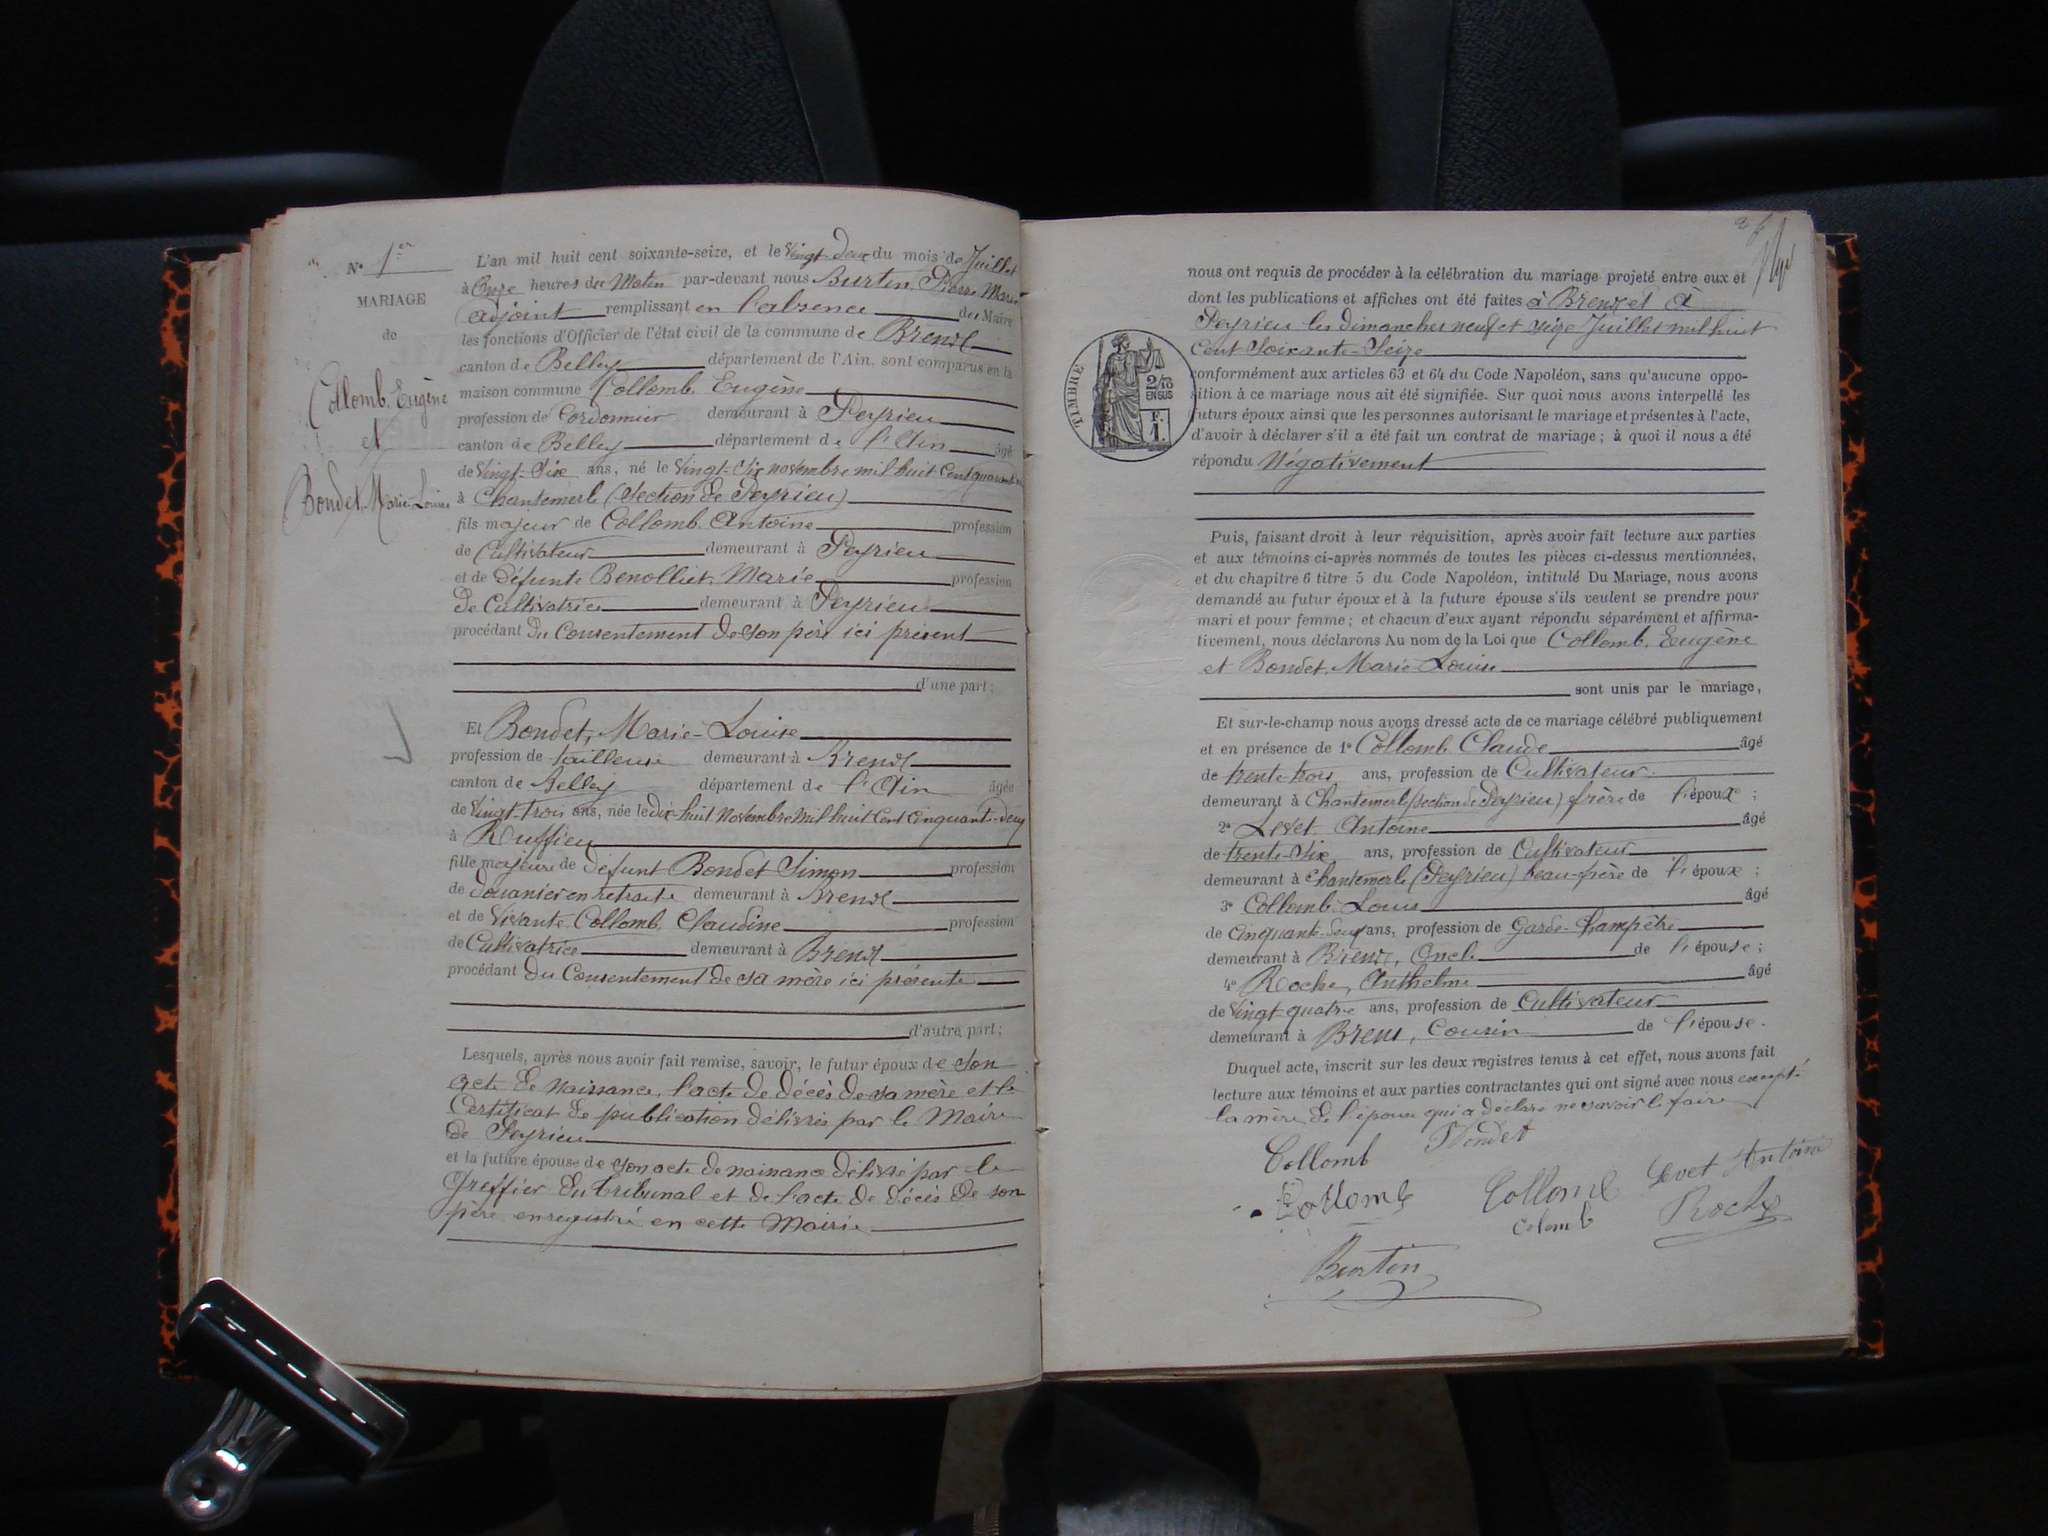 N° 1er
MARIAGE
de
Collomb, Eugène
et
Bondet, Marie-Louise
L'an mil huit cent soixante-seize, et le vingt deux du mois de Juillet
à Onze heures du Matin par-devant nous Burtin, Pierre Marie
adjoint remplissant en l'absence du Maire
les fonctions d'Officier de l'état civil de la commune de Brens
canton de Belley département de l'Ain, sont comparus en la
maison commune Collomb, Eugène
profession de Cordonnier demeurant à Peyrieu
canton de Belley département de l'Ain âgé
de vingt-six ans, né le vingt-six novembre mil huit cent quarante
à Chantemerle (section de Peyrieu)
fils majeur de Collomb, Antoine profession
de Cultivateur demeurant à Peyrieu
et de défunte Benolliet, Marie profession
de Cultivatrice demeurant à Peyrieu
procédant du Consentement de son père ici présent
d'une part;
Et Bondet, Marie-Louise
profession de tailleuse demeurant à Brens
canton de Belley département de l'Ain âgée
de vingt-trois ans, née le dix-huit Novembre Mil huit Cent Cinquante-deux
à Ruffieu
fille majeure de défunt Bondet Simon profession
de douanier en retraite demeurant à Brens
et de vivante Collomb, Claudine profession
de Cultivatrice demeurant à Brens
procédant du Consentement de sa mère ici présente
d'autre part;
Lesquels, après nous avoir fait remise, savoir, le futur époux de son
acte de naissance, l'acte de décès de sa mère et le
Certificat de publication délivrés par le Maire
de Peyrieu
et la future épouse de son acte de naissance délivré par le
Greffier du tribunal et de l'acte de décès de son
père enregistré en cette Mairie
nous ont requis de procéder à la célébration du mariage projeté entre eux et
dont les publications et affiches ont été faites à Brens et à
Peyrieu les dimanches neuf et seize Juillet mil huit
Cent Soixante-Seize
conformément aux articles 63 et 64 du Code Napoléon, sans qu'aucune oppo-
sition à ce mariage nous ait été signifiée. Sur quoi nous avons interpellé les
futurs époux ainsi que les personnes autorisant le mariage et présentes à l'acte,
d'avoir à déclarer s'il a été fait un contrat de mariage; à quoi il nous a été
répondu Négativement
TIMBRE
2/10
EN SUS
F.
1.
Puis, faisant droit à leur réquisition, après avoir fait lecture aux parties
et aux témoins ci-après nommés de toutes les pièces ci-dessus mentionnées,
et du chapitre 6 titre 5 du Code Napoléon, intitulé Du Mariage, nous avons
demandé au futur époux et à la future épouse s'ils veulent se prendre pour
mari et pour femme; et chacun d'eux ayant répondu séparément et affirma-
tivement, nous déclarons Au nom de la Loi que Collomb, Eugène
et Bondet, Marie-Louise
sont unis par le mariage,
Et sur-le-champ nous avons dressé acte de ce mariage célébré publiquement
et en présence de 1° Collomb Claude âgé
de trente-trois ans, profession de Cultivateur
demeurant à Chantemerle (section de Peyrieu) frère de l'époux;
2° Levet, Antoine âgé
de trente-six ans, profession de Cultivateur
demeurant à Chantemerle (Peyrieu) beau-frère de l'époux;
3° Collomb, Louis âgé
de cinquante-deux ans, profession de Garde-Champêtre
demeurant à Brens, Oncle de l'épouse;
4° Roche, Anthelme âgé
de vingt quatre ans, profession de Cultivateur
demeurant à Brens, Cousin de l'épouse.
Duquel acte, inscrit sur les deux registres tenus à cet effet, nous avons fait
lecture aux témoins et aux parties contractantes qui ont signé avec nous excepté
la mère de l'épouse qui a déclaré ne savoir le faire
Collomb Bondet
Levet Antoine
Collomb Collomb
Colomb Roche
Burtin